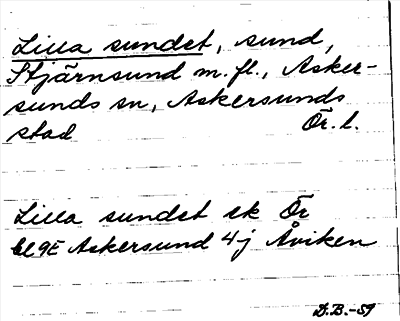 Lilla sundet, sund,
Stjärnsund m. fl., Asker-
sunds sn, Askersunds
stad Ör. l.
Lilla sundet ek Ör
bl 9E Askersund 4j Åviken
D.B.-59